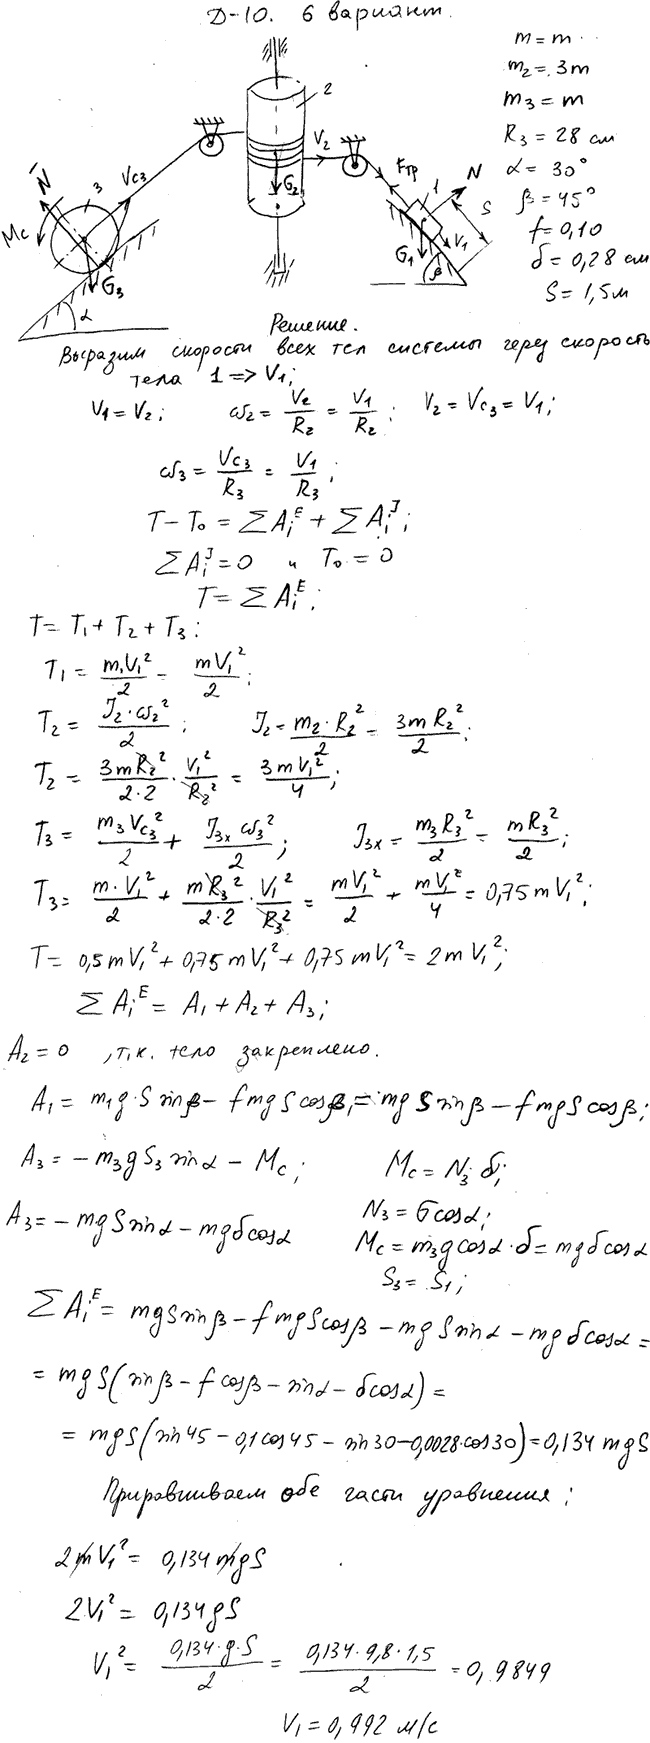 Д-10. 6 вариант.
m = m
m₂ = 3m
m₃ = m
R₃ = 28 см
α = 30°
β = 45°
f = 0,10
δ = 0,28 см
S = 1,5м
2
V₂
G₂
Fтр
N
1
S
G₁
V₁
β
N̄
3
Vc₃
Mc
G₃
α
Решение.
Выразим скорости всех тел системы через скорость
тела 1 => V₁;
V₁ = V₂; ω₂ = Ve/R₂ = V₁/R₂; V₂ = Vc₃ = V₁;
ω₃ = Vc₃/R₃ = V₁/R₃;
T - T₀ = ΣAᵢᴱ + ΣAᵢᴶ;
ΣAᵢᴶ = 0 и T₀ = 0
T = ΣAᵢᴱ;
T = T₁ + T₂ + T₃:
T₁ = m₁V₁²/2 = mV₁²/2;
T₂ = J₂·ω₂²/2; J₂ = m₂·R₂²/2 = 3mR₂²/2;
T₂ = 3mR₂²/2·2 · V₁²/R₂² = 3mV₁²/4;
T₃ = m₃Vc₃²/2 + J₃ₓω₃²/2; J₃ₓ = m₃R₃²/2 = mR₃²/2;
T₃ = m·V₁²/2 + mR₃²/2·2 · V₁²/R₃² = mV₁²/2 + mV₁²/4 = 0,75mV₁²;
T = 0,5mV₁² + 0,75mV₁² + 0,75mV₁² = 2mV₁²;
ΣAᵢᴱ = A₁ + A₂ + A₃;
A₂ = 0 , т.к. тело закреплено.
A₁ = m₁g·S sinβ - fmgS cosβ = mgS sinβ - fmgS cosβ;
A₃ = - m₃gS₃ sinα - Mc; Mc = N₃ δ;
N₃ = G cosα;
A₃ = - mgS sinα - mgδcosα
Mc = m₃g cosα·δ = mgδcosα
S₃ = S₁;
ΣAᵢᴱ = mgS sinβ - fmgS cosβ - mgS sinα - mgδcosα =
= mgS(sinβ - f cosβ - sinα - δcosα) =
= mgS(sin45 - 0,1cos45 - sin30 - 0,0028·cos30) = 0,134 mgS
Приравниваем обе части уравнения;
2mV₁² = 0,134mgS
2V₁² = 0,134gS
V₁² = 0,134·g·S/2 = 0,134·9,8·1,5/2 = 0,9849
V₁ = 0,992 м/с